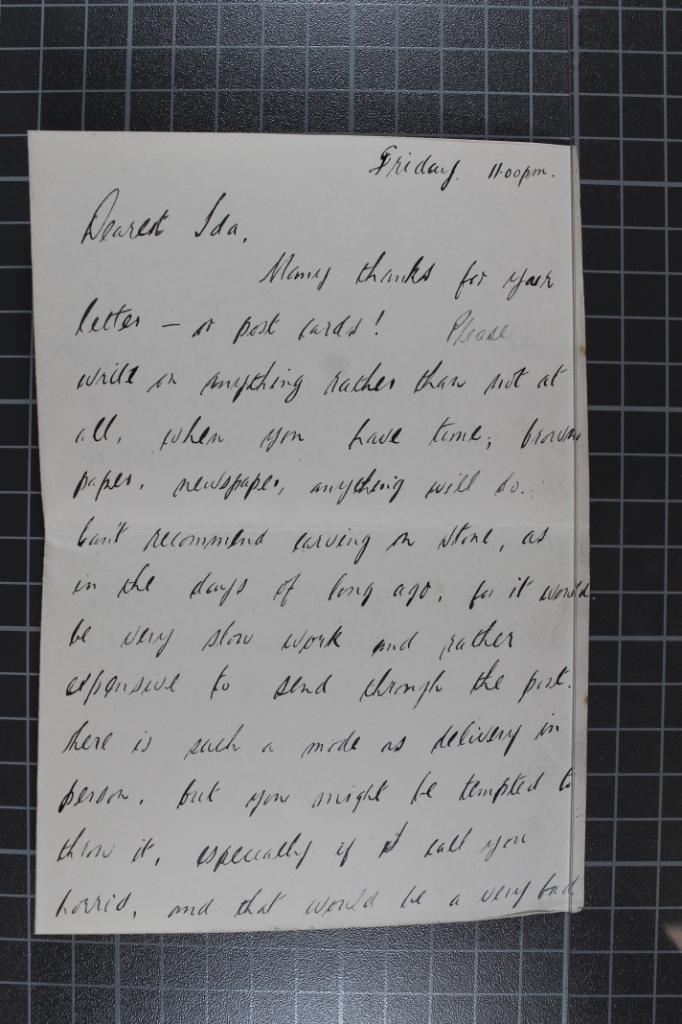 Friday. 11.00pm.
Dearest Ida,
Many thanks for your
letter – or post cards! Please
write on anything rather than not at
all, when you have time; brown
paper, newspaper, anything will do.
Can't recommend carving on stone, as
in the days of long ago, for it would
be very slow work and rather
expensive to send through the post.
There is such a mode as delivery in
person, but you might be tempted to
throw it, especially if I call you
horrid, and that would be a very bad